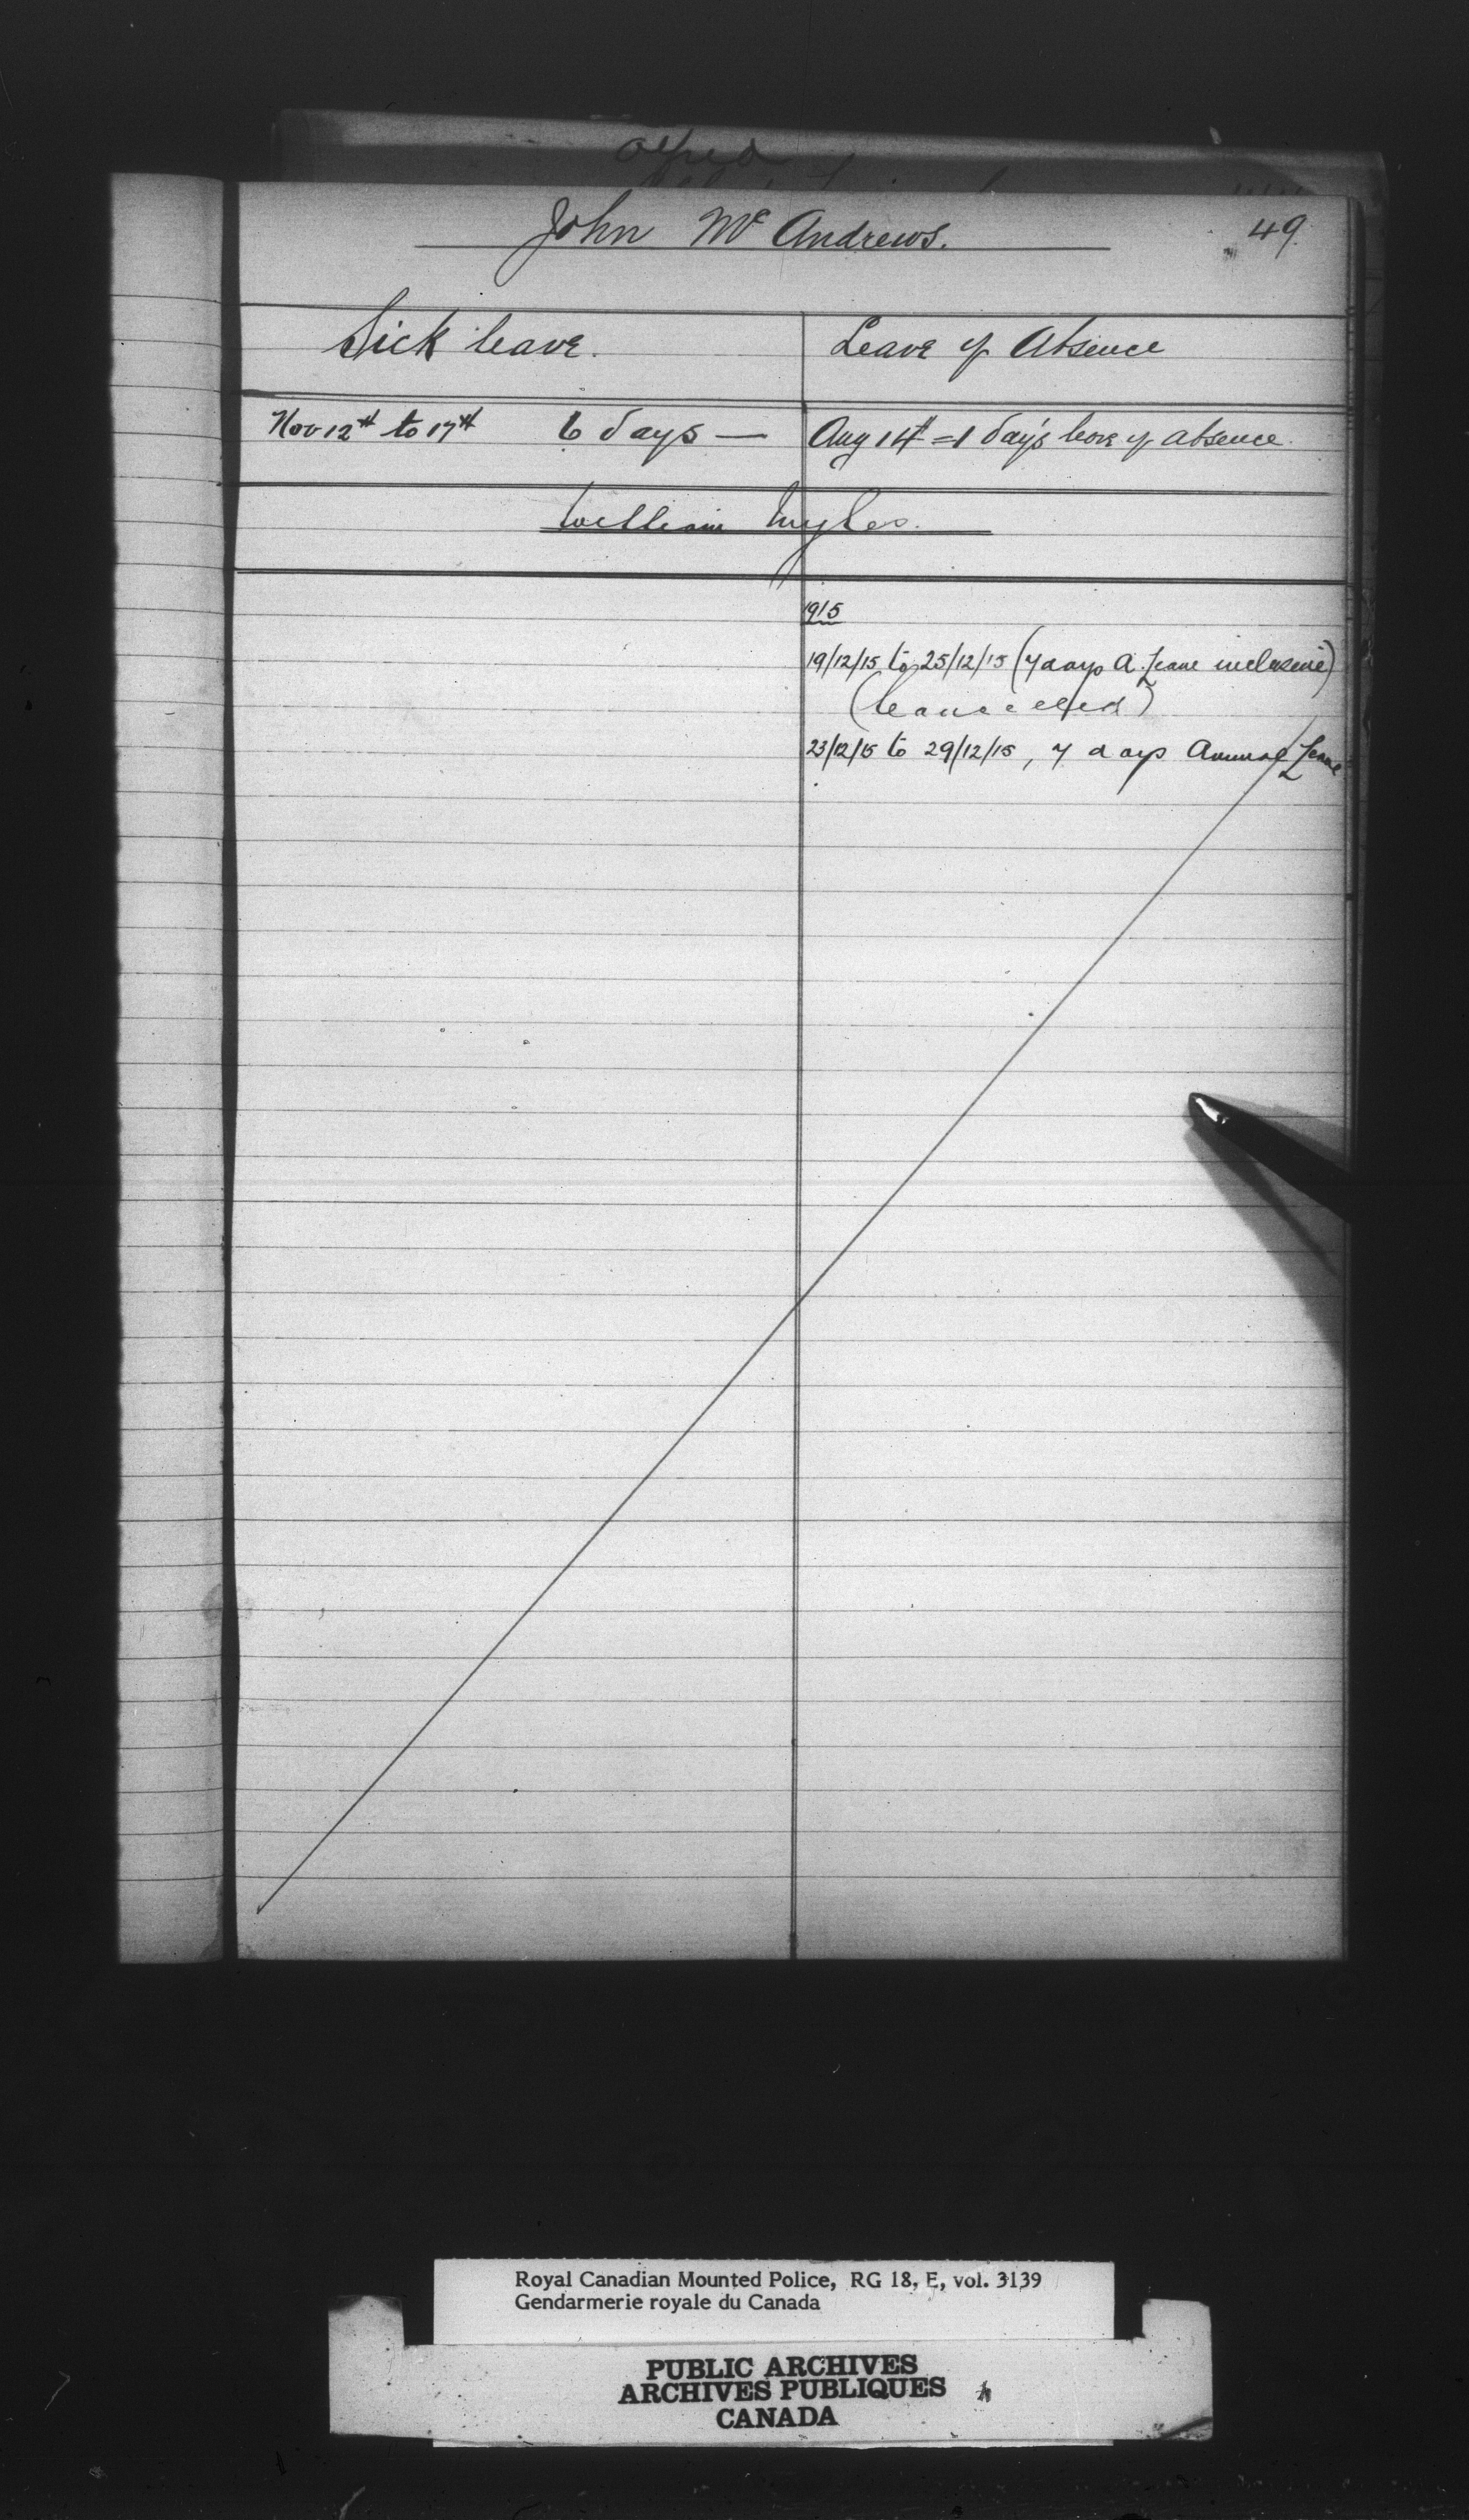 Alfred
John Mc Andrews. 49.
Sick leave. Leave of Absence
Nov 12th to 17th 6 days — Aug 14th = 1 day's leave of absence.
William Myles.
1915
19/12/15 to 25/12/15 (7 days A. Leave inclusive)
(Cancelled)
23/12/15 to 29/12/15, 7 days Annual Leave
Royal Canadian Mounted Police, RG 18, E, vol. 3139
Gendarmerie royale du Canada
PUBLIC ARCHIVES
ARCHIVES PUBLIQUES
CANADA